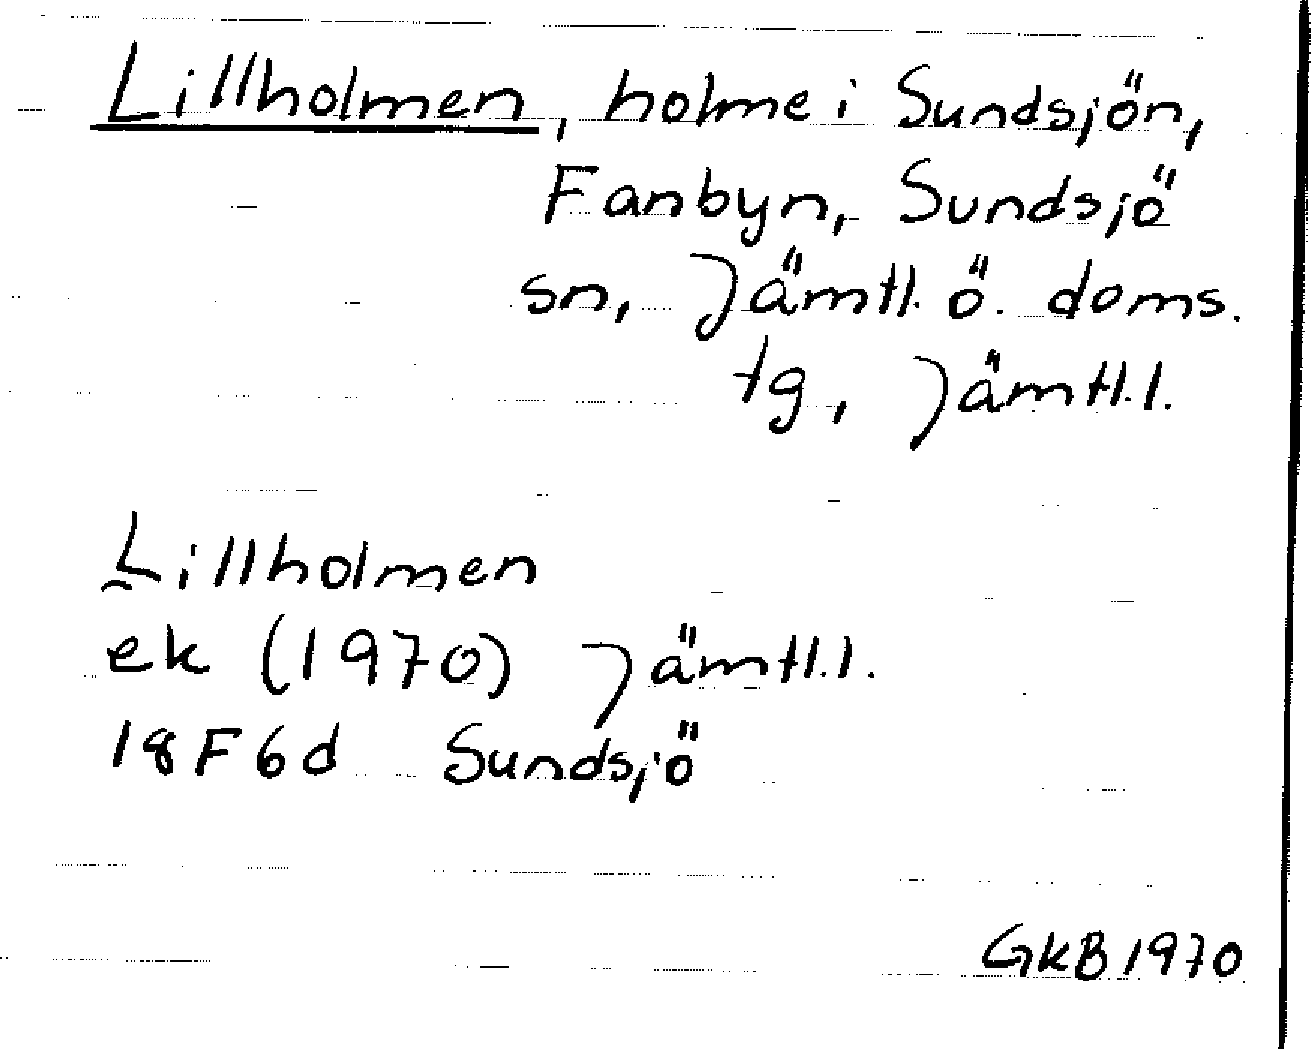 Lillholmen, holme i Sundsjön,
Fanbyn, Sundsjö
sn, Jämtl. ö. doms.
tg, Jämtl.l.
Lillholmen
ek (1970) Jämtl.l.
18F6d Sundsjö
GKB 1970